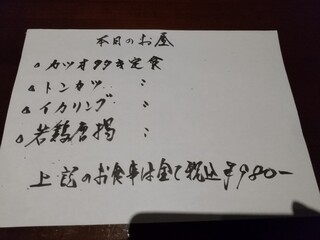 本日のお昼
カツオタタキ定食
トンカツ 〃
イカリング 〃
若鶏唐揚 〃
上記のお食事は全て税込¥980-